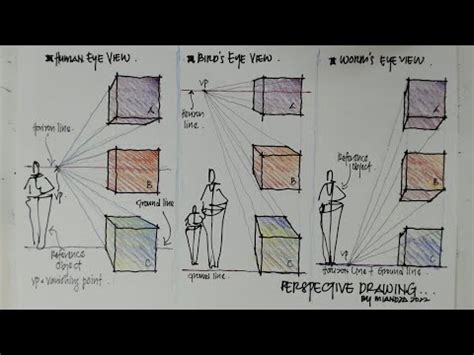 HUMAN EYE VIEW.
VP
A
Horizon line.
B
VP
Ground line
Reference
Object
VP = Vanishing point.
C
BIRD'S EYE VIEW.
VP
A
Horizon
line.
B
C
Ground line
WORM'S EYE VIEW.
A
Reference
Object.
B
VP
C
Horizon Line + Ground line
PERSPECTIVE DRAWING...
BY MIANDZA 2022